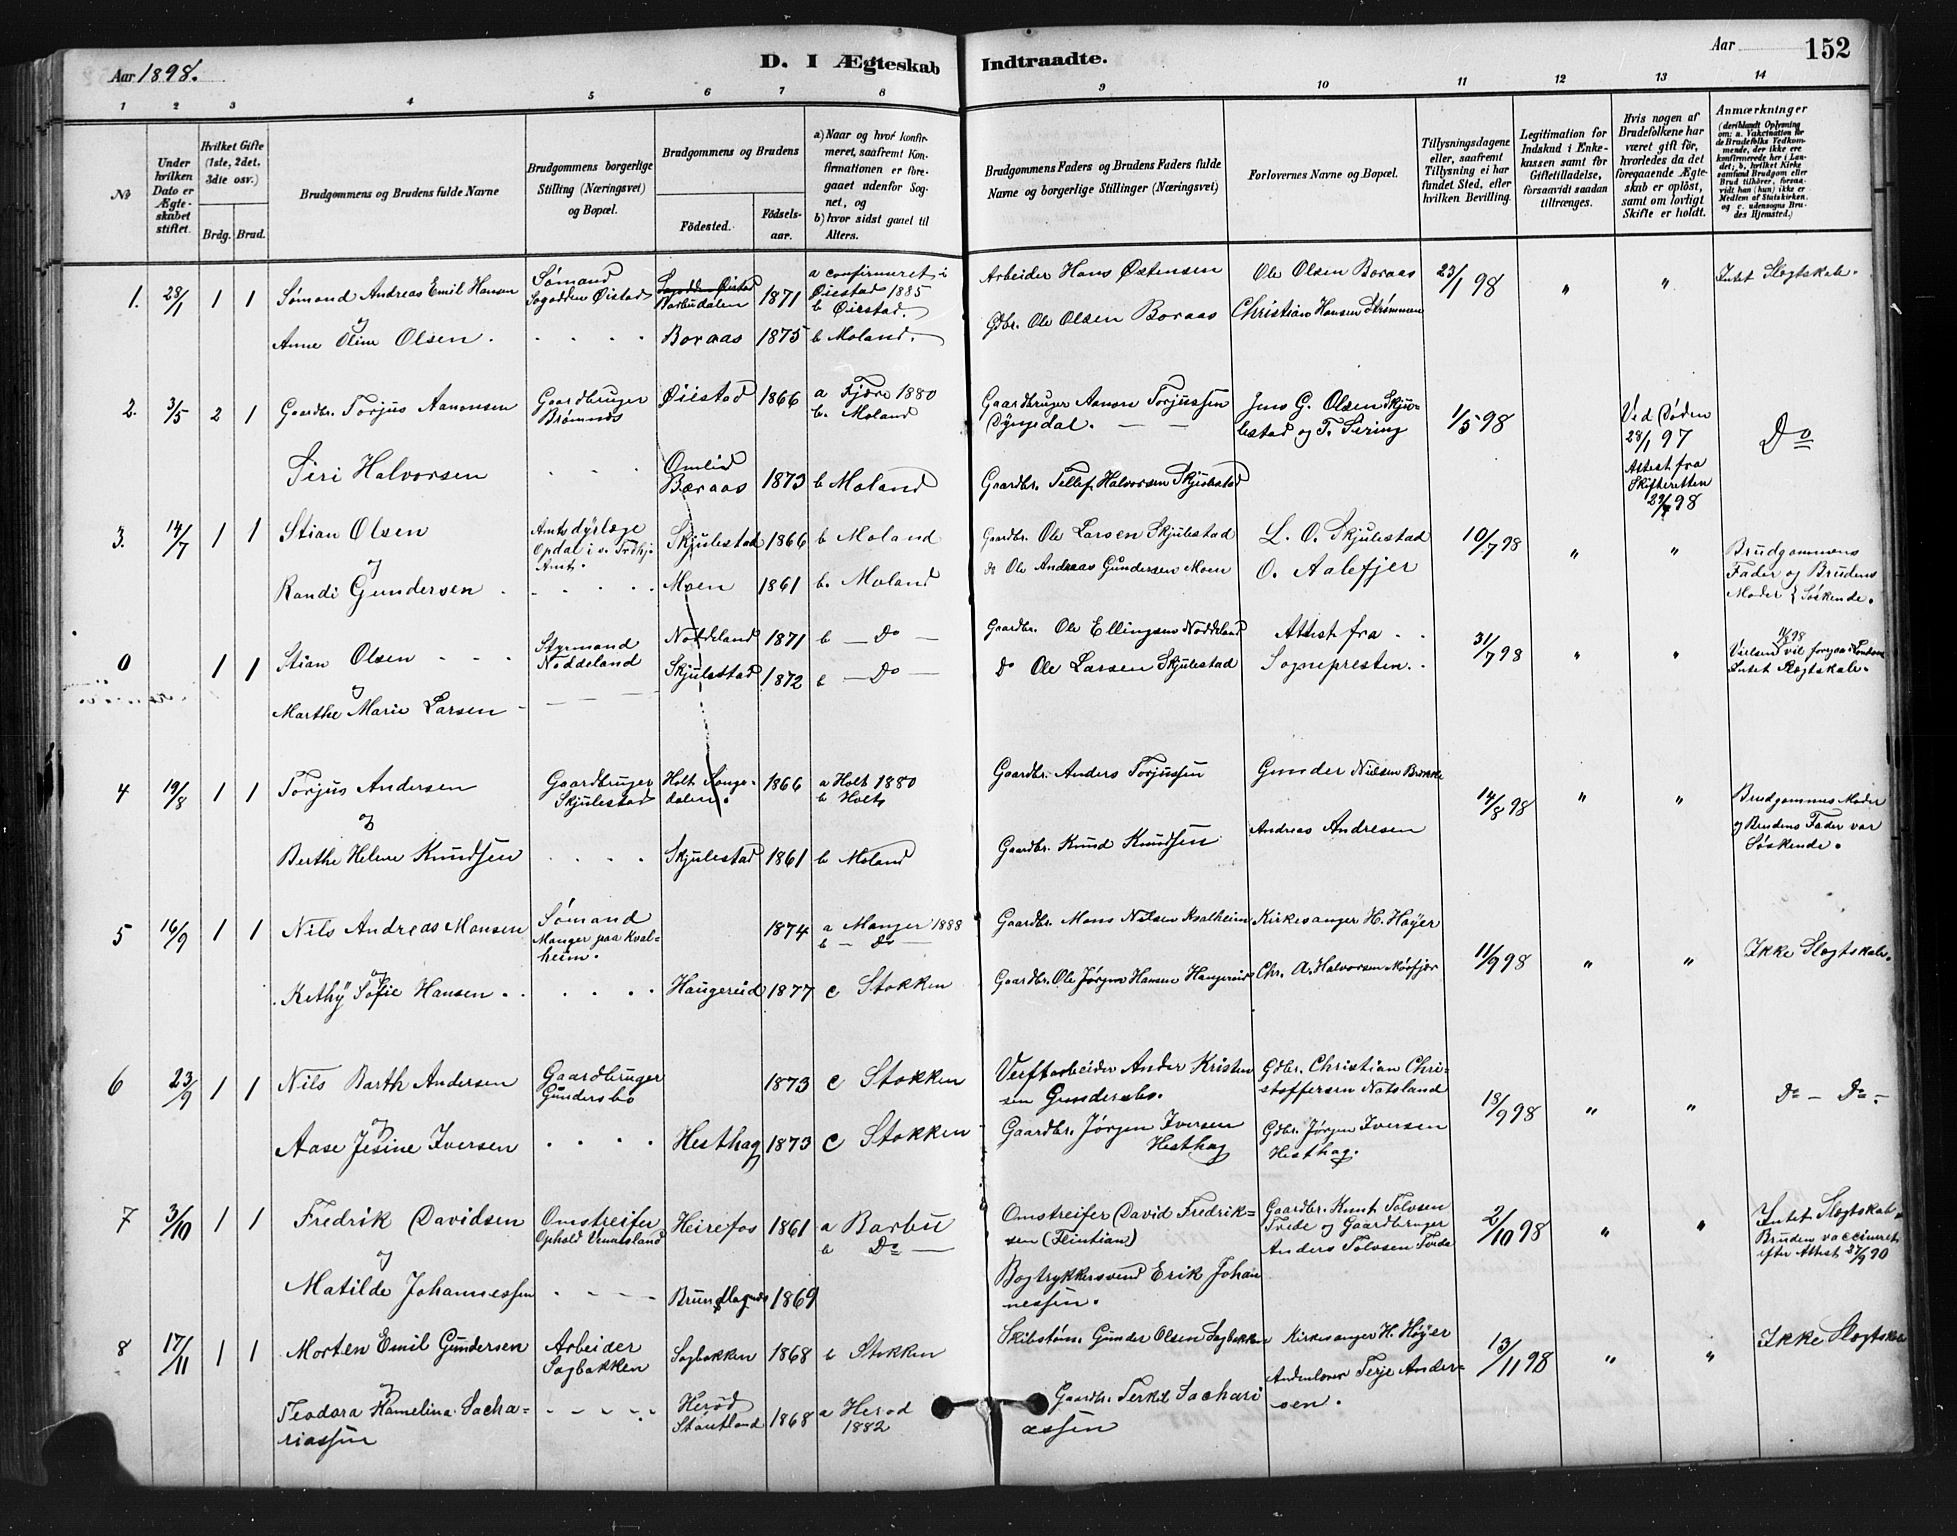 Aar 1898.
D. I Ægteskab Indtraadte.
Aar
152
1 2 3 4 5 6 7 8 9 10 11 12 13 14
No
Under hvilken Dato er Ægteskabet stiftet.
Hvilket Gifte (1ste, 2det, 3die osv.)
Brdg. Brud.
Brudgommens og Brudens fulde Navne
Brudgommens borgerlige Stilling (Næringsvei) og Bopæl.
Brudgommens og Brudens
Fødested.
Fødselsaar.
a) Naar og hvor konfirmeret, saafremt Konfirmationen er foregaaet udenfor Sognet, og
b) hvor sidst gaaet til Alters.
Brudgommens Faders og Brudens Faders fulde Navne og borgerlige Stillinger (Næringsvei)
Forlovernes Navne og Bopæl.
Tillysningsdagene eller, saafremt Tillysning ei har fundet Sted, efter hvilken Bevilling.
Legitimation for Indskud i Enkekassen samt for Giftetilladelse, forsaavidt saadan tiltrænges.
Hvis nogen af Brudefolkene har været gift før, hvorledes da det foregaaende Ægteskab er opløst, samt om lovligt Skifte er holdt.
Anmærkninger
(deriblandt Oplysning om: a. Vakcination for de Brudefolks Vedkommende, der ikke ere konfirmerede her i Landet; b. hvilket Kirkesamfund Brudgom eller Brud tilhører, forsaavidt han (hun) ikke er Medlem af Statskirken, og c. udensogns Brudes Hjemsted.)
1. 28/1 1 1 Sømand Andreas Emil Hansen
Sømand Sogodden Øistad
Barbudalen 1871
a confirmeret i Øiestad 1885
b Øiestad.
Arbeider Hans Østensen
Ole Olsen Boraas
23/1 98 " "
Intet Slegtskab.
og
Anne Oline Olsen.
Boraas 1875 b Moland.
Gdbr. Ole Olsen Boraas
Christian Hansen Strømmen
2. 3/5 2 1 Gaardbr. Torjus Aanonsen
Gaardbruger Brømnes
Øiestad 1866 a Fjære 1880
b. Moland
Gaardbruger Aanon Torjussen
Dyngedal.
Jens G. Olsen Skjulestad og T. Sering
1/5 98
Ved Døden 28/1 97
Attest fra Skifteretten 29/4 98
Do
Siri Halvorsen
Omlid Boraas 1873 b Moland
Gaardbr. Tellef Halvorsen Skjulestad
3. 14/7 1 1 Stian Olsen
Amtsdyrlæge Opdal i s. Trdhj. Amt.
Skjulestad 1866 b Moland
Gaardbr. Ole Larsen Skjulestad
L. O. Skjulestad
10/7 98 " "
Brudgommens Fader og Brudens Moder Søskende.
og
Randi Gundersen
Moen 1861 b. Moland
do Ole Andreas Gundersen Moen
O. Aalefjer
0 1 1 Stian Olsen
Styrmand Noddeland
Noddeland 1871 b — Do —
Gaardbr. Ole Ellingsen Noddeland
Attest fra Sognepresten.
31/7 98 " "
Vielsen vil foregaa i London
Intet Slegtskab.
og
Marthe Marie Larsen
Skjulestad 1872 b — Do —
Do Ole Larsen Skjulestad
4 19/8 1 1 Torjus Andersen
Gaardbruger Skjulestad
Holt Songedalen. 1866
a Holt 1880
b Holt
Gaardbr. Anders Torjussen
Gunder Nielsen Brække
14/8 98 " "
Brudgommens Moder og Brudens Fader var Søskende.
og
Berthe Helene Knudsen
Skjulestad 1861 b Moland
Gaardbr. Knud Knudsen
Andreas Andresen
5 16/9 1 1 Nils Andreas Monsen
Sømand Manger paa Kvalheim.
1874 a Manger 1888
b — Do —
Gaardbr. Mons Nilsen Kvalheim
Kirkesanger H. Høyer
11/9 98 " "
Ikke Slegtskab.
og
Kethy Sofie Hansen.
Haugerud 1877 c Stokken
Gaardbr. Ole Jørgen Hansen Haugerud
Chr. A. Halvorsen Mørfjær
6 23/9 1 1 Nils Barth Andersen
Gaardbruger Gundersbo
1873 c Stokken
Verftarbeider Ander Kristensen Gundersbo.
Gdbr. Christian Christoffersen Natsland
18/9 98 " "
Do — Do —
og
Aase Jesine Iversen
Hesthag 1873 c Stokken
Gaardbr. Jørgen Iversen Hesthag
Gdbr. Jørgen Iversen Hesthag.
7 3/10 1 1 Fredrik Davidsen
Omstreifer Ophold Vennesland
Heirefos 1861 a Barbu
b Do —
Omstreifer David Fredriksen (Flintian)
Gaardbr. Knut Tolvsen Tvede og Gaardbruger Anders Tolvsen Tvede
2/10 98 " "
Intet Slegtskab
Bruden vaccineret efter Attest 27/9 90
og
Matilde Johannessen
Brundlagnæs 1869
Bogtrykkersvend Erik Johannessen.
8 17/11 1 1 Morten Emil Gundersen
Arbeider Sagbakken
Sagbakken 1868 b Stokken
Skibstøm. Gunder Olsen Sagbakken
Kirkesanger H. Høyer
13/11 98 " "
Ikke Slegtskab
og
Teodora Kamelina Sachariassen
Herød Stautland 1868 a Herød 1882
Gaardbr. Terkil Sachariassen
Andenlærer Terje Andersen.